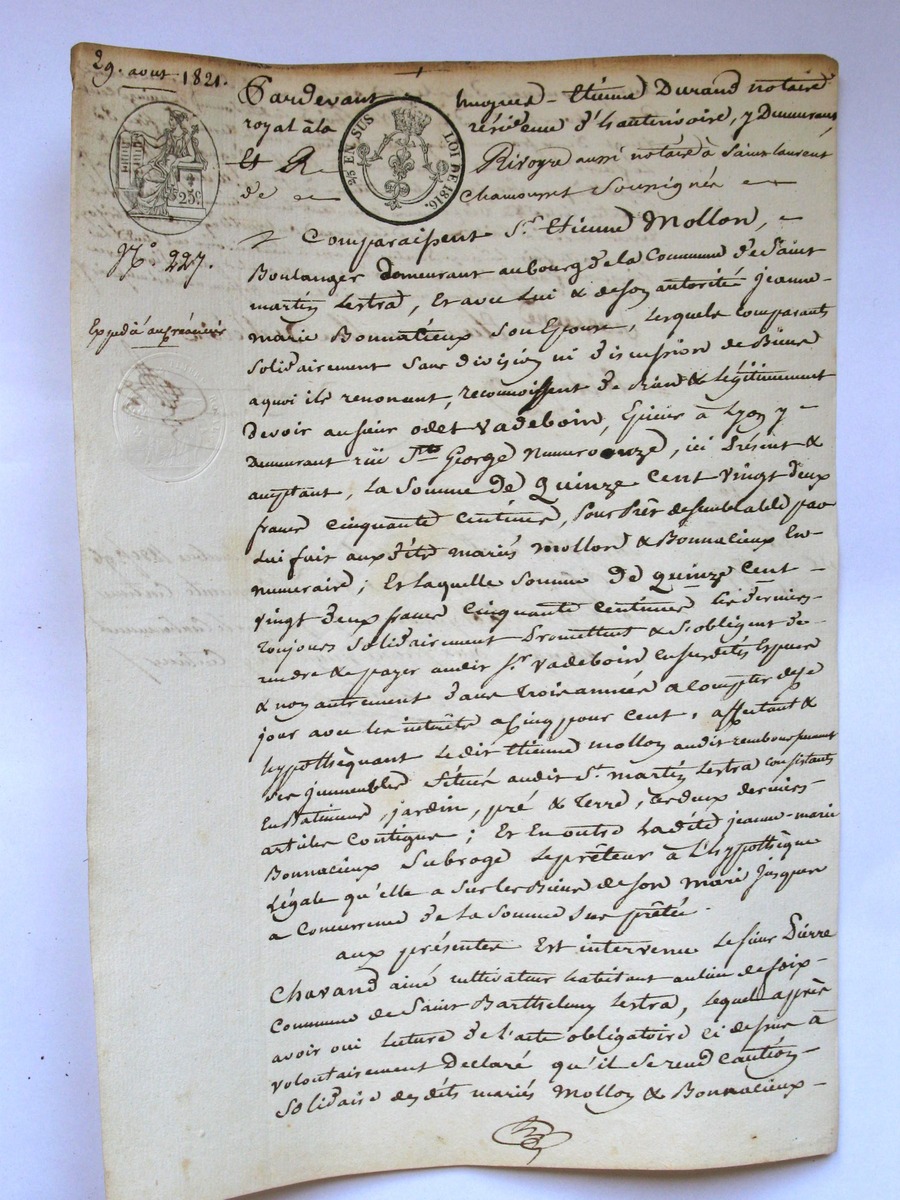 29. aout 1821.
Pardevant hugues-Etienne Durand notaire
royal à la résidence d'hauterivoire, y Demeurant
Et Rivoyre aussi notaire à Saint laurent
de Chamousset Soussignés
25c
¼ EN SUS
LOI DE 1816.
N.° 227.
Expedié au créancier
Comparaissent S.r Etienne Mollon,
Boulanger demeurant au bourg de la Commune de Saint
martin Lestra, Et avec Lui & de son autorité jeanne
marie Bonnacieux son Epouse, Lesquels comparants
Solidairement sans division ni discussion de Biens
a quoi ils renoncent, reconnoissent de bien & légitimement
devoir au sieur odet Vadeboin, Epicier à Lyon y
Demeurant rüe S.te George Numero onze, ici Présent &
acceptant, La Somme de Quinze Cent Vingt deux
francs cinquante centimes, pour Prêt de semblable par
Lui fait aux dits mariés Mollon & Bonnacieux En
numeraire; Et laquelle somme de quinze Cent
vingt deux francs cinquante Centimes les derniers
toujours solidairement Promettent & S'obligent de
rendre & de payer audit S.r Vadeboin en susdites Espèces
& non autrement dans trois années a compter de ce
jour avec les intérêts a cinq pour cent, affectant &
hypothèquant Ledit Etienne mollon audit remboursement
ses jmmeubles Situés audit S.t martin Lestra consistants
En Batiments, jardin, pré & Terre, les deux derniers
articles contigus; Et En outre Ladite jeanne-marie
Bonnacieux Subroge Le prêteur à L'hypothèque
Légale qu'elle a sur les Biens de son mari jusques
a Concurrence de la Somme sus prêtée.
aux présentes Est intervenu Le sieur Pierre
Chavand ainé cultivateur habitant au lieu de soix
Commune de Saint Barthelemy Lestra, Lequel après
avoir oui lecture de l'acte obligatoire ci dessus à
volontairement Declaré qu'il se rend caution
solidaire desdits mariés Mollon & Bonnacieux